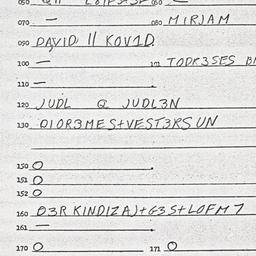 070 — 080 MIRJAM
090 DAVID // KOV1D
100 — TODR3SES
110 —
120 JUDL @ JUDL3N
130 O1OR3MES+VEST3RSUN
150 O
151 O
152 O
160 O3R KINDIZAJ+G3S+LOFM7
161 —
170 O 171 O